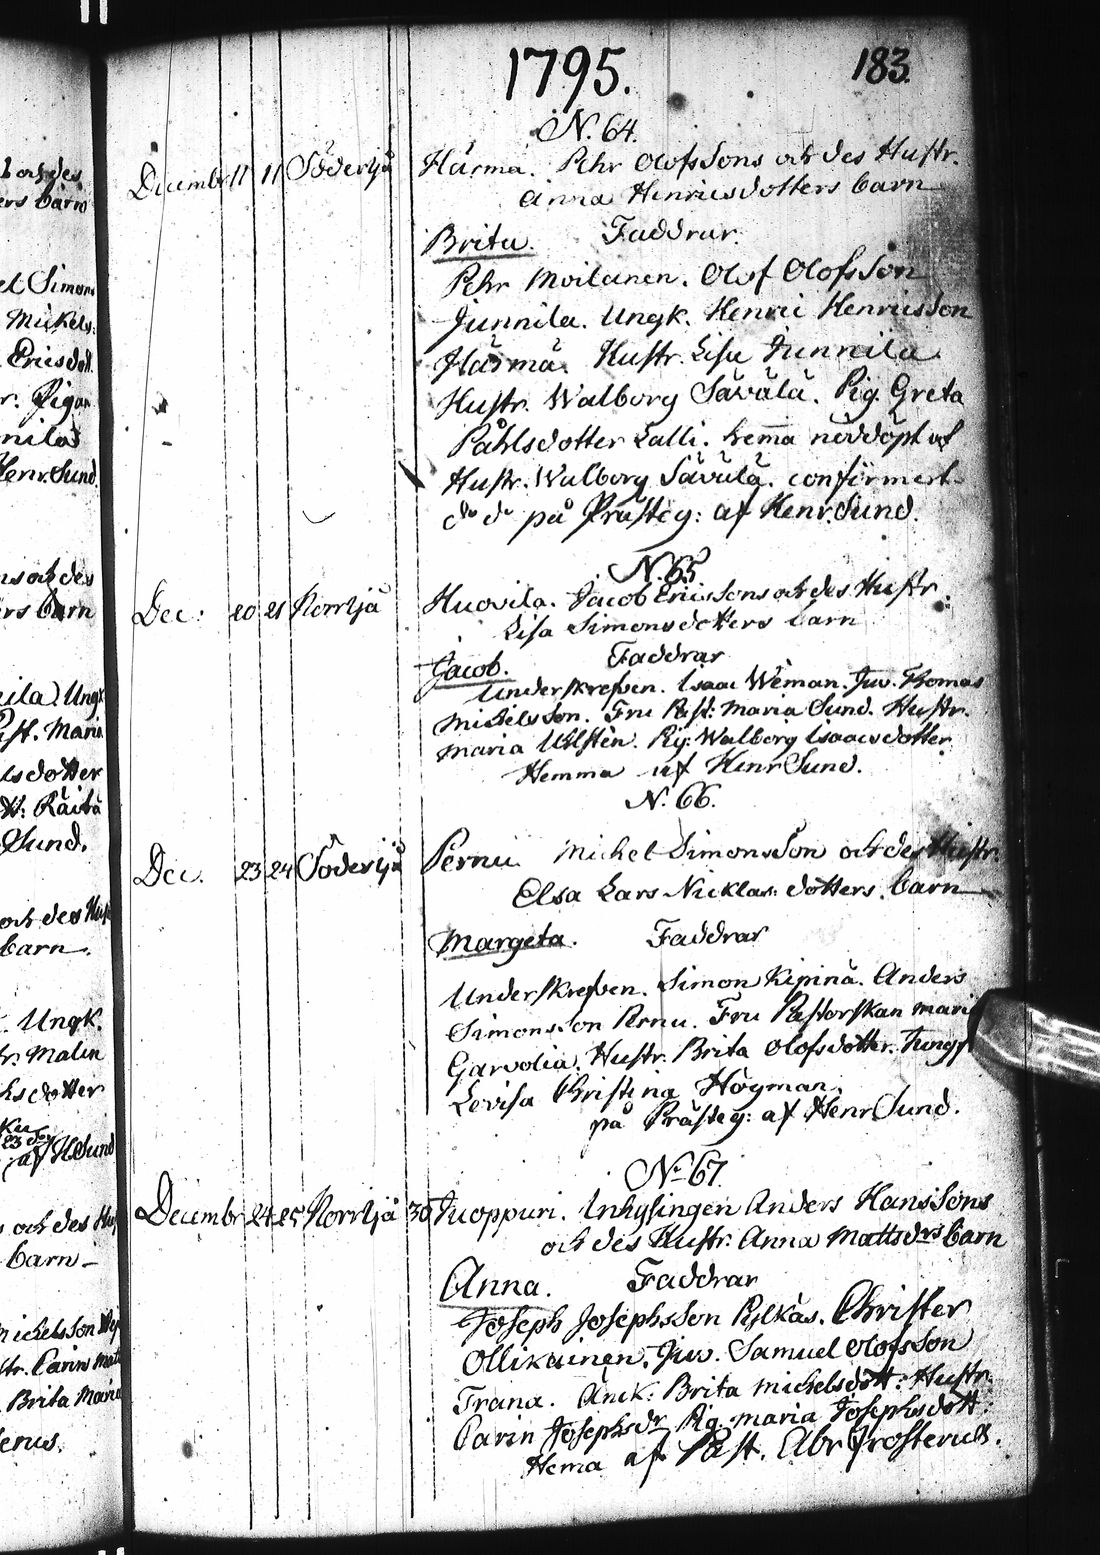 1795. 183.
N. 64.
Decembr 11 11 Söderljä Härmä. Pehr Olofssons och des Hustr.
Anna Henricsdotters barn
Brita. Faddrar.
Pehr Moilanen. Olof Olofsson
Junnila. Ungk. Henric Henricsson
Härmä. Hustr. Lisa Junnila
Hustr. Walborg Säwälä. Pig. Greta
Påhlsdotter Lalli. hema nöddöpt af
Hustr. Walborg Säwälä. confirmert
do do på Prästeg: af Henr. Sund.
N. 65
Dec: 20 21 Norrljä Huovila. Jacob Ericssons och des Hustr.
Lisa Simonsdotters barn
Jacob. Faddrar
Underskrefven. Isaac Weman. Juv. Thomas
Michelsson. Fru Past: Maria Sund. Hustr.
Maria Pig. Walborg Isaacsdotter
Hemma af Henr Sund.
N. 66.
Dec. 23 24 Söderljä Pernu. Michel Simonsson och des Hustr.
Elsa Lars Nicklas: dotters. barn
Margeta. Faddrar
Underskrefven. Simon Kipinä. Anders
Simonsson Pernu. Fru Pastorskan Mari
Garvolia. Hustr. Brita Olofsdotter. Jungf
Lovisa Christina Högman.
på Prästeg: af Henr Sund.
No 67.
Decembr 24 25 Norrljä 30 Juoppuri. Inhysingen Anders Hanssons
och des Hustr. Anna Mattsdrs barn
Anna. Faddrar
Joseph Josephsson Pylkäs. Christer
Ollikainen. Juv. Samuel Olofsson
Trana. Änck: Brita Michelsdott: Hustr.
Carin Josephsdr Pig. Maria Josephsdott:
Hema af Past. Abr Frosterus.